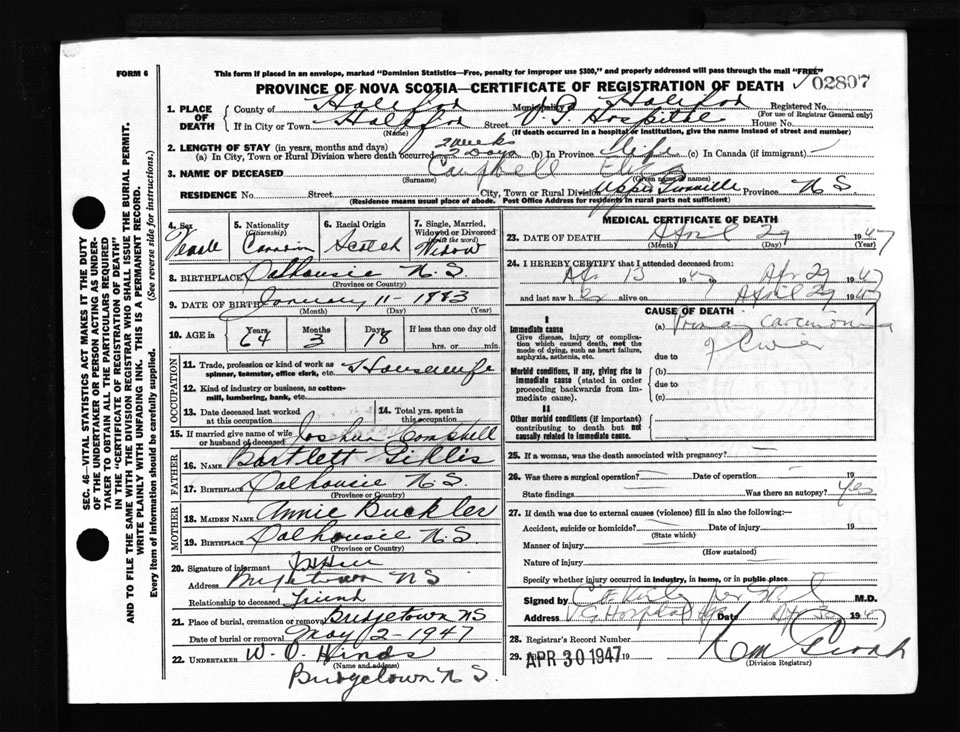 FORM 6
This form if placed in an envelope, marked "Dominion Statistics—Free, penalty for improper use $300," and properly addressed will pass through the mail "FREE"
02807
PROVINCE OF NOVA SCOTIA—CERTIFICATE OF REGISTRATION OF DEATH
1. PLACE OF DEATH County of Halifax Municipality Halifax Registered No.
(For use of Registrar General only)
If in City or Town Halifax Street V. G. Hospital House No.
(If death occurred in a hospital or institution, give the name instead of street and number)
2. LENGTH OF STAY (in years, months and days)
(a) In City, Town or Rural Division where death occurred 2 weeks 2 Days (b) In Province life (c) In Canada (if immigrant) —
3. NAME OF DECEASED Campbell Eliza
(Surname) (Given names)
RESIDENCE No. Street City, Town or Rural Division Upper Province N S.
(Residence means usual place of abode. Post Office Address for residents in rural parts not sufficient)
4. Sex Female
5. Nationality (Citizenship) Canadian
6. Racial Origin Scotch
7. Single, Married, Widowed or Divorced (write the word) Widow
8. BIRTHPLACE Dalhousie N. S.
(Province or Country)
9. DATE OF BIRTH January 11 - 1883
(Month) (Day) (Year)
10. AGE in Years Months Days If less than one day old
64 3 18 hrs. or min.
OCCUPATION
11. Trade, profession or kind of work as spinner, teamster, office clerk, etc. Housewife
12. Kind of industry or business, as cotton-mill, lumbering, bank, etc.
13. Date deceased last worked at this occupation
14. Total yrs. spent in this occupation
15. If married give name of wife or husband of deceased Joshua Campbell
FATHER
16. NAME Bartlett Gillis
17. BIRTHPLACE Dalhousie N. S.
(Province or Country)
MOTHER
18. MAIDEN NAME Annie Buckler
19. BIRTHPLACE Dalhousie N. S.
(Province or Country)
20. Signature of informant
Address Bridgetown N S
Relationship to deceased friend
21. Place of burial, cremation or removal Bridgetown NS
Date of burial or removal May 2 - 1947
22. UNDERTAKER W. O. Hinds
(Name and address)
Bridgetown N S.
MEDICAL CERTIFICATE OF DEATH
23. DATE OF DEATH April 29 1947
(Month) (Day) (Year)
24. I HEREBY CERTIFY that I attended deceased from:
Apr 13 1947 Apr 29 1947
and last saw h er alive on April 29 1947
CAUSE OF DEATH
I
Immediate cause
Give disease, injury or complication which caused death, not the mode of dying, such as heart failure, asphyxia, asthenia, etc.
(a) Primary carcinoma
of Liver
due to
Morbid conditions, if any, giving rise to immediate cause (stated in order proceeding backwards from immediate cause).
(b)
due to
(c)
II
Other morbid conditions (if important) contributing to death but not causally related to immediate cause.
25. If a woman, was the death associated with pregnancy? —
26. Was there a surgical operation? — Date of operation — 19
State findings — Was there an autopsy? Yes
27. If death was due to external causes (violence) fill in also the following:—
Accident, suicide or homicide? Date of injury 19
(State which)
Manner of injury
(How sustained)
Nature of injury
Specify whether injury occurred in industry, in home, or in public place
Signed by M.D.
Address V G Hospital Date 1947
28. Registrar's Record Number
29. APR 30 1947 19
(Division Registrar)
SEC. 46—VITAL STATISTICS ACT MAKES IT THE DUTY
OF THE UNDERTAKER OR PERSON ACTING AS UNDER-
TAKER TO OBTAIN ALL THE PARTICULARS REQUIRED
IN THE "CERTIFICATE OF REGISTRATION OF DEATH"
AND TO FILE THE SAME WITH THE DIVISION REGISTRAR WHO SHALL ISSUE THE BURIAL PERMIT.
WRITE PLAINLY WITH UNFADING INK. THIS IS A PERMANENT RECORD.
Every item of information should be carefully supplied. (See reverse side for instructions.)